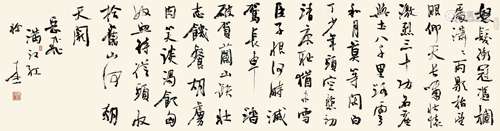 怒髮衝冠憑欄
處瀟瀟雨歇抬望
眼仰天長嘯壯懷
激烈三十功名塵
與土八千里路雲
和月莫等閑白
了少年頭空悲切
靖康恥猶未雪
臣子恨何時滅
駕長車踏
破賀蘭山缺壯
志飢餐胡虜
肉笑談渴飲匈
奴血待從頭收
拾舊山河朝
天闕
岳飛
滿江紅